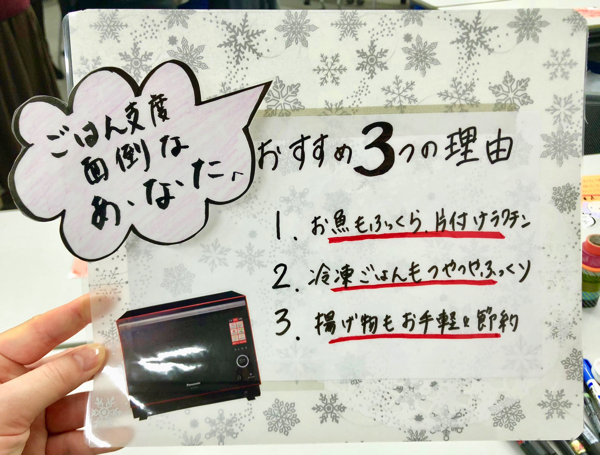 ごはん支度
面倒な
あ、な、た、
おすすめ3つの理由
1. お魚もふっくら、片付けラクチン
2. 冷凍ごはんもつやつや、ふっくり
3. 揚げ物もお手軽&節約
Panasonic